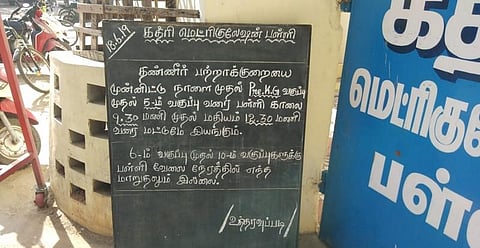 18.6.19
கதிரி மெட்ரிகுலேஷன் பள்ளி
தண்ணீர் பற்றாக்குறையை
முன்னிட்டு நாளை முதல் Pre.K.G வகுப்பு
முதல் 5-ம் வகுப்பு வரை பள்ளி காலை
9.30 மணி முதல் மதியம் 12.30 மணி
வரை மட்டுமே இயங்கும்.
6-ம் வகுப்பு முதல் 10-ம் வகுப்புகளுக்கு
பள்ளி வேலை நேரத்தில் எந்த
மாறுதலும் இல்லை.
/உத்தரவுப்படி/
கதி
மெட்ரிகுலே
பள்